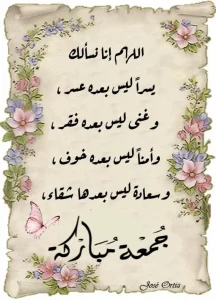 اللهم إنا نسألك
يسراً ليس بعده عسر ،
وغنى ليس بعده فقر ،
وأمناً ليس بعده خوف ،
وسعادة ليس بعدها شقاء ،
جُمعة مُباركة
José Ortiz